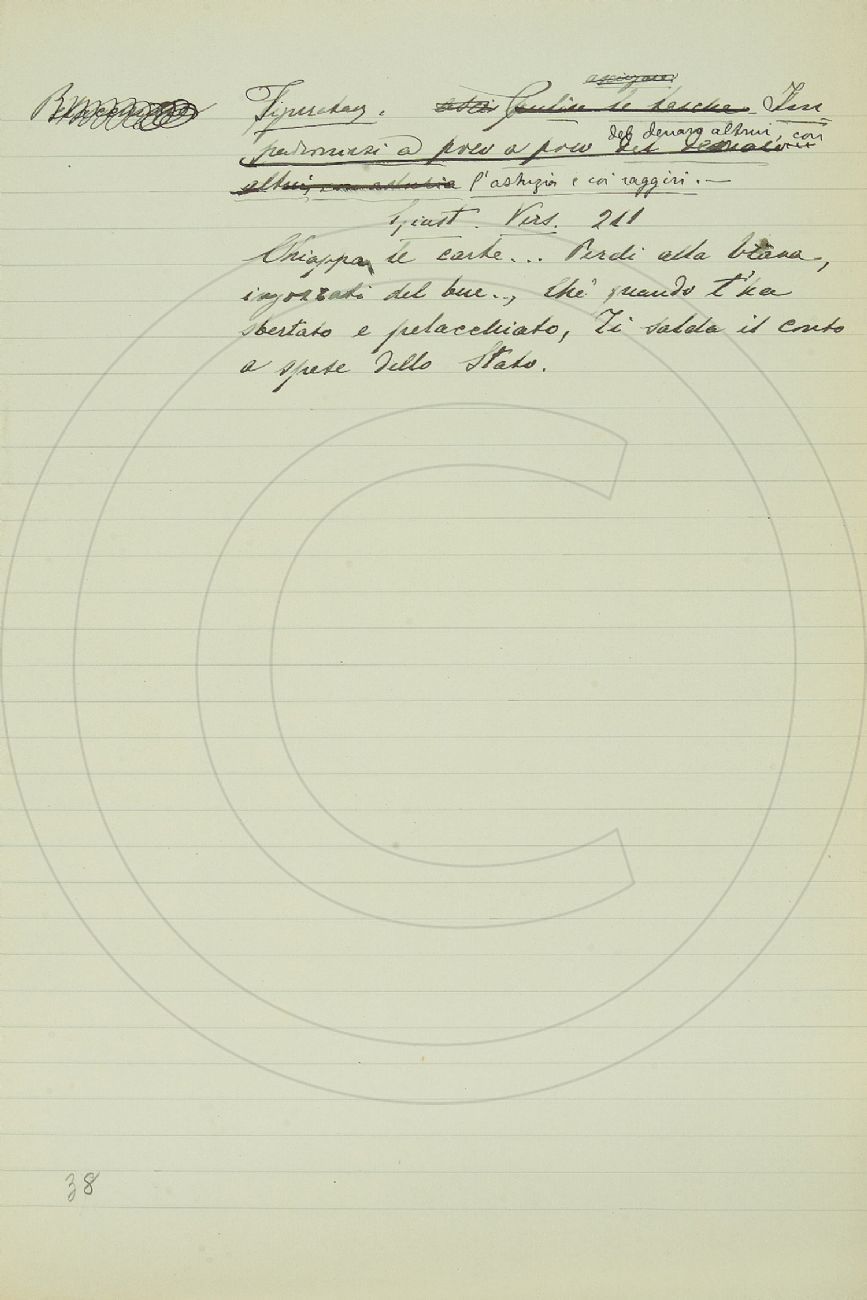 Figuratam. Pulire le tasche. Im
padronirsi a poco a poco del denaro altrui, con
l'astuzia e coi raggiri. —
Giust. Vers. 211
Chiappa le carte... Perdi alla
ingozzati del bue.., chè quando t'ha
sbertato e pelacchiato, Ti salda il conto
a spese dello Stato.
38